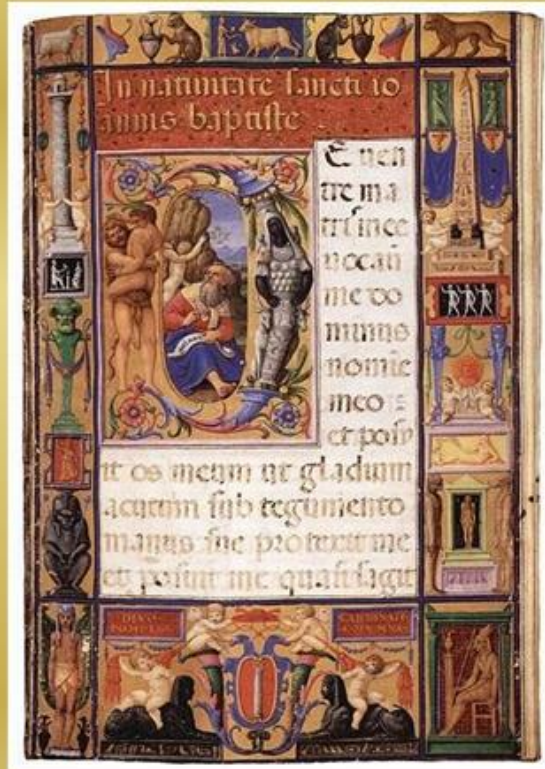 In natiuitate sancti io
annis baptiste .
D E uen
tre ma
tris mee
uocauit
me do
minus
nomīe
meo :
et posu
it os meum ut gladium
acutum sub tegumento
manus sue protexit me
et posuit me quasi sagit
DIVO
POMPEIO